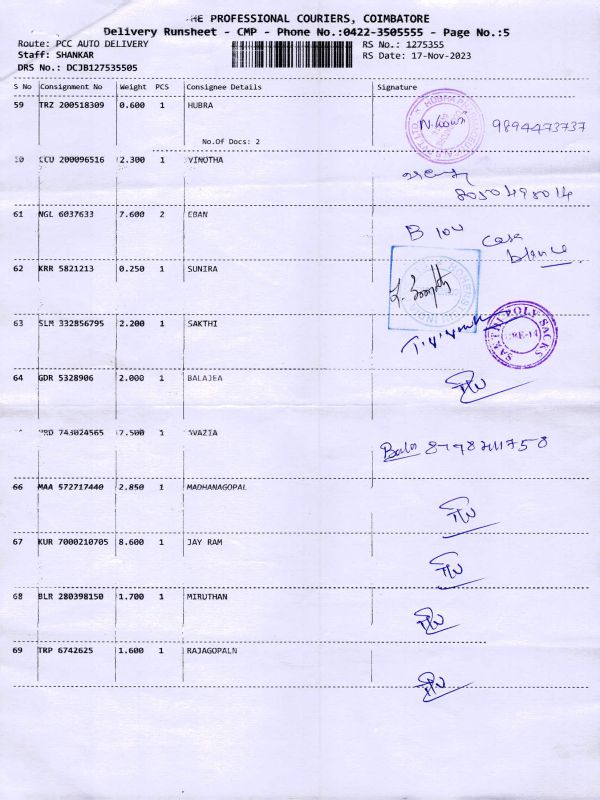 HE PROFESSIONAL COURIERS, COIMBATORE
Delivery Runsheet - CMP - Phone No.:0422-3505555 - Page No.:5
Route: PCC AUTO DELIVERY
RS No.: 1275355
Staff: SHANKAR
RS Date: 17-Nov-2023
DRS No.: DCJB127535505
S No Consignment No Weight PCS Consignee Details Signature
59 TRZ 200518309 0.600 1 HUBRA
9894473737
No.Of Docs: 2
CCU 200096516 2.300 1 VINOTHA
8050498014
61 NGL 6037633 7.600 2 EBAN
62 KRR 5821213 0.250 1 SUNIRA
63 SLM 332856795 2.200 1 SAKTHI
POLY SACKS
64 GDR 5328906 2.000 1 BALAJEA
743024565 7.500 1 AVAZIA
66 MAA 572717440 2.850 1 MADHANAGOPAL
67 KUR 7000210705 8.600 1 JAY RAM
68 BLR 280398150 1.700 1 MIRUTHAN
69 TRP 6742625 1.600 1 RAJAGOPALN